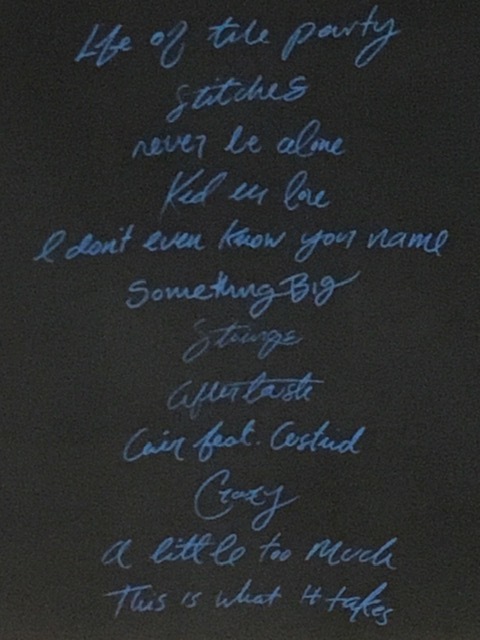 Life of the party
Stitches
never be alone
Kid in love
I don't even know your name
Something Big
Strings
Aftertaste
Air feat. Astrid
Crazy
A little too Much
This is what it takes